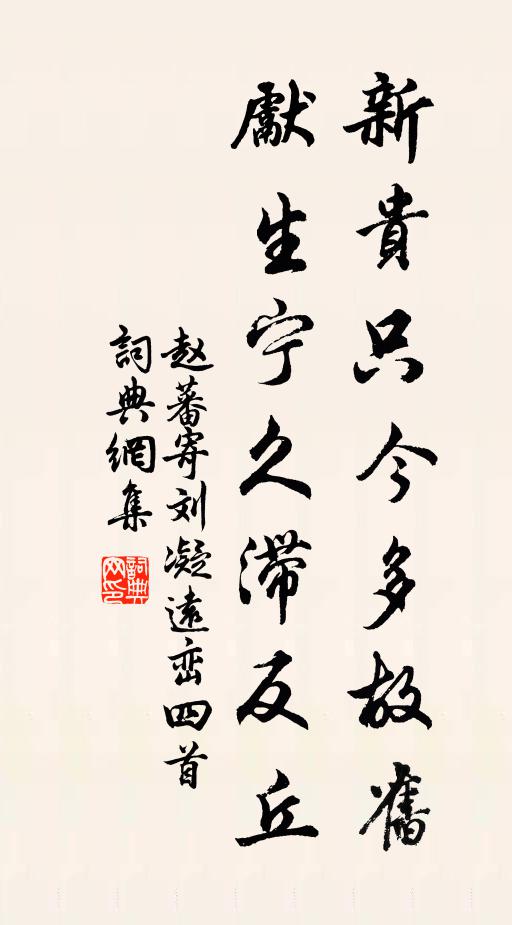 新貴只今多故舊
獻生宁久滯反丘
赵蕃寄刘凝遠峦四首
詞典網集
詞典網印